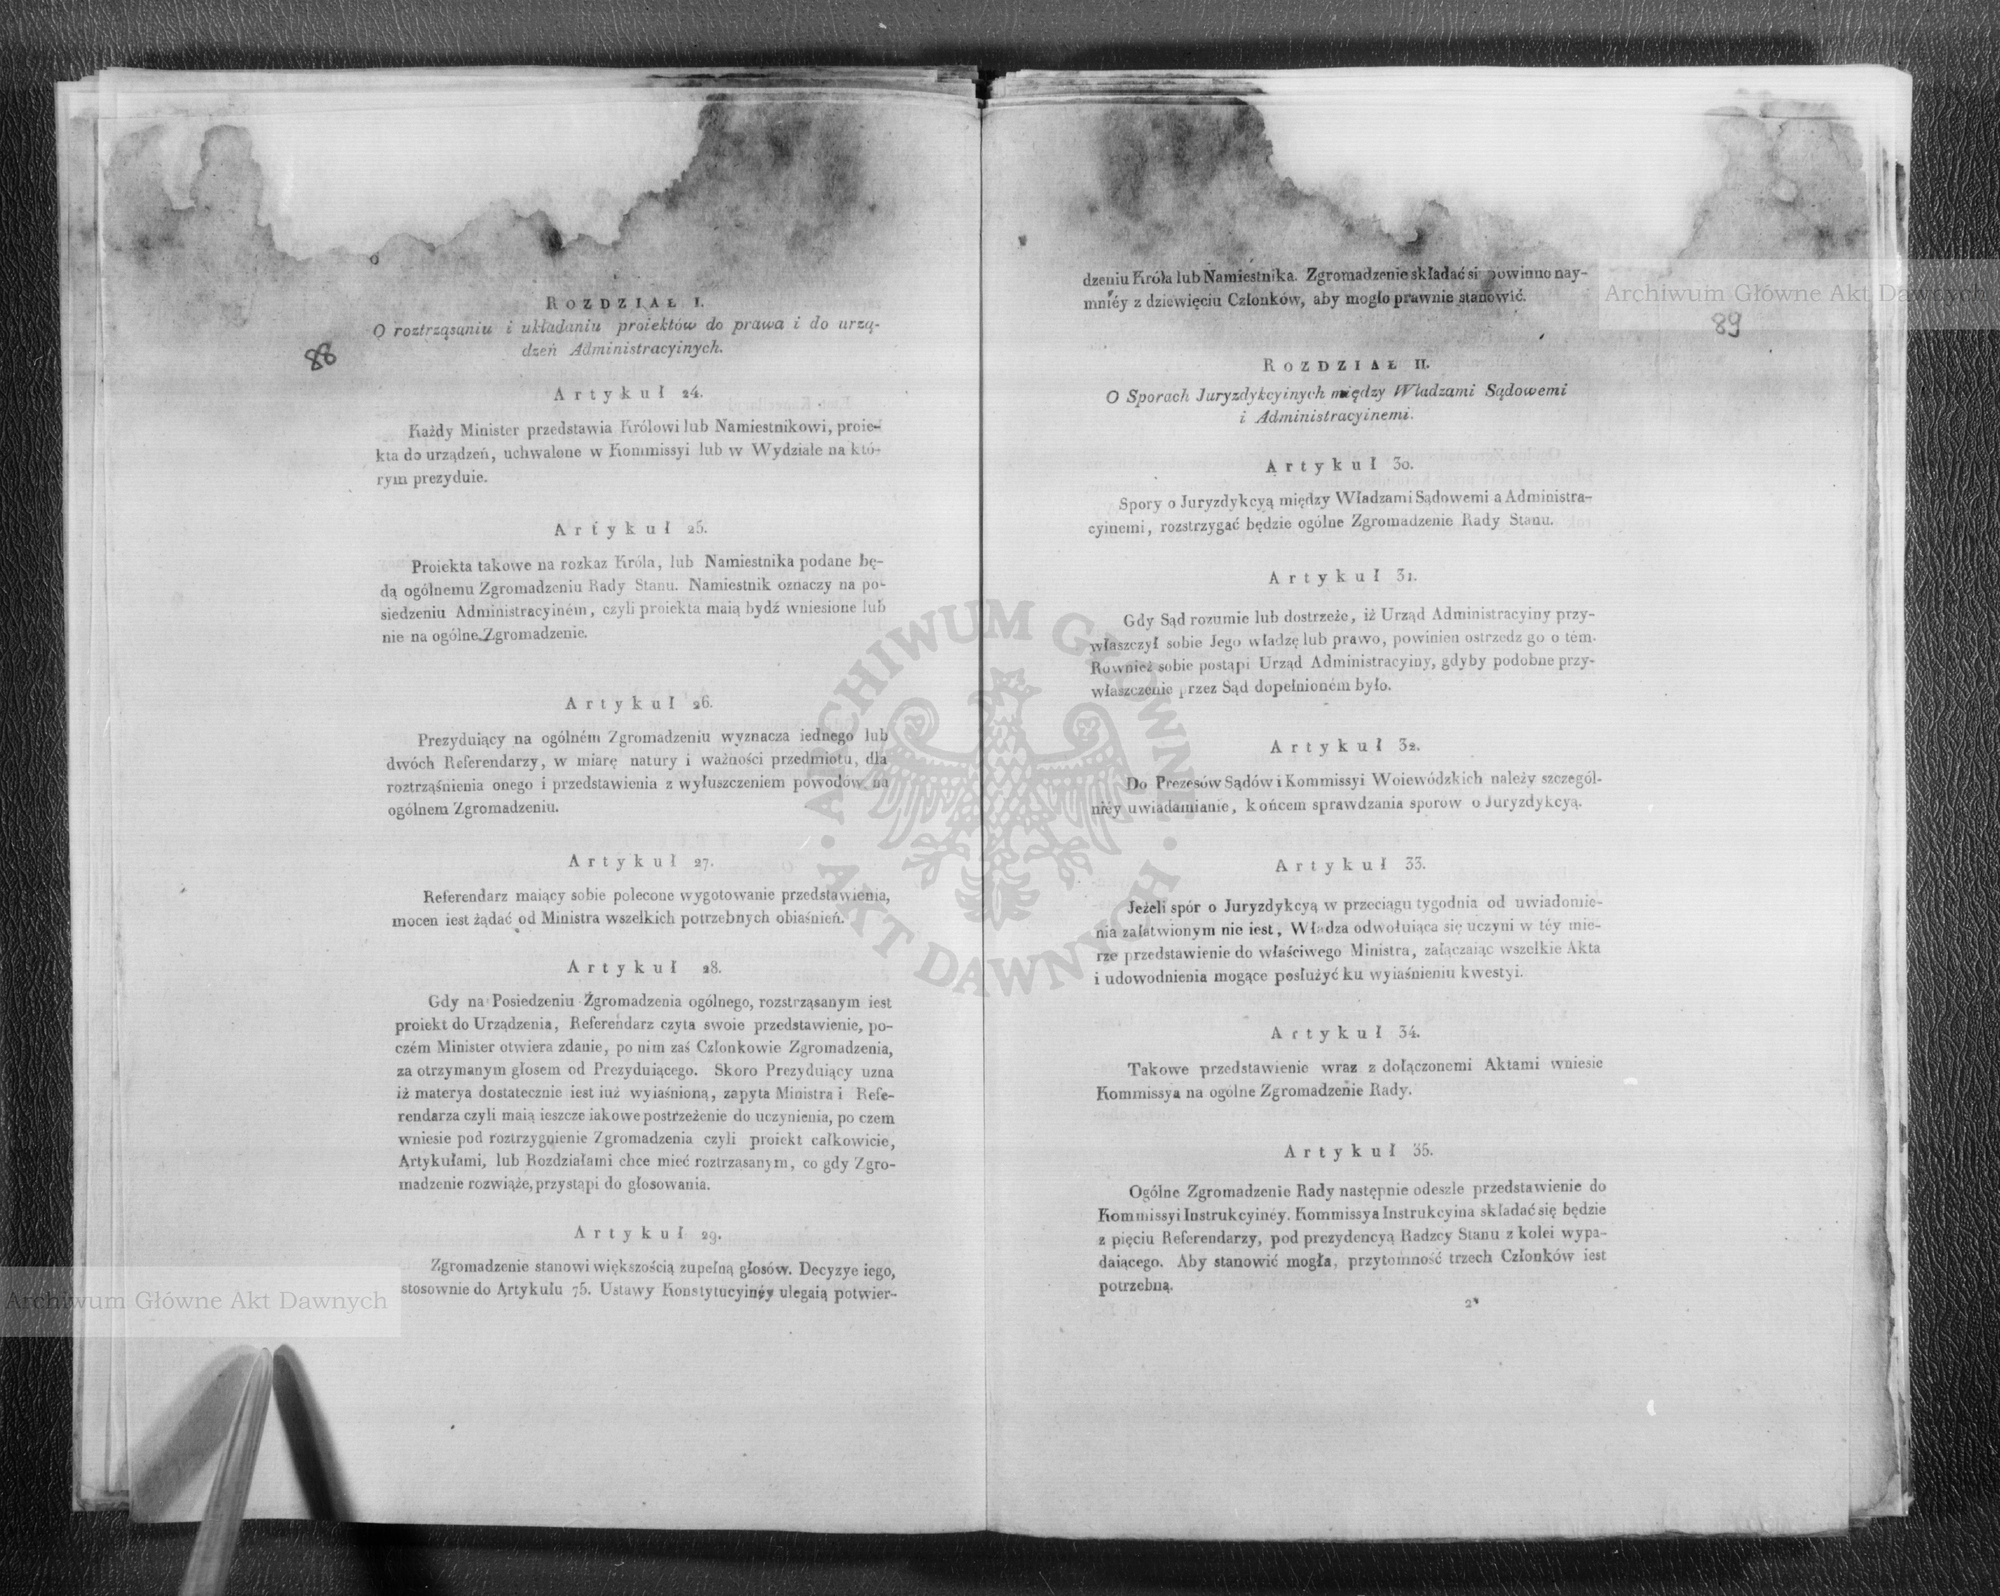 88
ROZDZIAŁ I.
O roztrząsaniu i układaniu proiektów do prawa i do urzą-
dzeń Administracyinych.
Artykuł 24.
Każdy Minister przedstawia Królowi lub Namiestnikowi, proie-
kta do urządzeń, uchwalone w Kommissyi lub w Wydziale na któ-
rym prezyduie.
Artykuł 25.
Proiekta takowe na rozkaz Króla, lub Namiestnika podane bę-
dą ogólnemu Zgromadzeniu Rady Stanu. Namiestnik oznaczy na po-
siedzeniu Administracyiném, czyli proiekta maią bydź wniesione lub
nie na ogólne Zgromadzenie.
Artykuł 26.
Prezyduiący na ogólném Zgromadzeniu wyznacza iednego lub
dwóch Referendarzy, w miarę natury i ważności przedmiotu, dla
roztrząśnienia onego i przedstawienia z wyłuszczeniem powodów na
ogólnem Zgromadzeniu.
Artykuł 27.
Referendarz maiący sobie polecone wygotowanie przedstawienia,
mocen iest żądać od Ministra wszelkich potrzebnych obiaśnień.
Artykuł 28.
Gdy na Posiedzeniu Zgromadzenia ogólnego, rozstrząsanym iest
proiekt do Urządzenia, Referendarz czyta swoie przedstawienie, po-
czém Minister otwiera zdanie, po nim zaś Członkowie Zgromadzenia,
za otrzymanym głosem od Prezyduiącego. Skoro Prezyduiący uzna
iż materya dostatecznie iest iuż wyiaśnioną, zapyta Ministra i Refe-
rendarza czyli maią ieszcze iakowe postrzeżenie do uczynienia, po czem
wniesie pod roztrzygnienie Zgromadzenia czyli proiekt całkowicie,
Artykułami, lub Rozdziałami chce mieć roztrzasanym, co gdy Zgro-
madzenie rozwiąże, przystąpi do głosowania.
Artykuł 29.
Zgromadzenie stanowi większością zupełną głosów. Decyzye iego,
stosownie do Artykułu 75. Ustawy Konstytucyinéy ulegaią potwier-
89
dzeniu Króla lub Namiestnika. Zgromadzenie składać się powinno nay-
mniéy z dziewięciu Członków, aby mogło prawnie stanowić.
ROZDZIAŁ II.
O Sporach Juryzdykcyinych między Władzami Sądowemi
i Administracyinemi.
Artykuł 30.
Spory o Juryzdykcyą między Władzami Sądowemi a Administra-
cyinemi, rozstrzygać będzie ogólne Zgromadzenie Rady Stanu.
Artykuł 31.
Gdy Sąd rozumie lub dostrzeże, iż Urząd Administracyiny przy-
właszczył sobie Jego władzę lub prawo, powinien ostrzedz go o tém.
Rownież sobie postąpi Urząd Administracyiny, gdyby podobne przy-
właszczenie przez Sąd dopełnioném było.
Artykuł 32.
Do Prezesów Sądów i Kommissyi Woiewódzkich należy szczegól-
niéy uwiadamianie, końcem sprawdzania sporów o Juryzdykcyą.
Artykuł 33.
Jeżeli spór o Juryzdykcyą w przeciągu tygodnia od uwiadomie-
nia załatwionym nie iest, Władza odwołuiąca się uczyni w téy mie-
rze przedstawienie do właściwego Ministra, załączaiąc wszelkie Akta
i udowodnienia mogące posłużyć ku wyiaśnieniu kwestyi.
Artykuł 34.
Takowe przedstawienie wraz z dołączonemi Aktami wniesie
Kommissya na ogólne Zgromadzenie Rady.
Artykuł 35.
Ogólne Zgromadzenie Rady następnie odeszle przedstawienie do
Kommissyi Instrukcyinéy. Kommissya Instrukcyina składać się będzie
z pięciu Referendarzy, pod prezydencyą Radzcy Stanu z kolei wypa-
daiącego. Aby stanowić mogła, przytomność trzech Członków iest
potrzebną.
2*
Archiwum Główne Akt Dawnych
Archiwum Główne Akt Dawnych
ARCHIWUM GŁÓWNE · AKT DAWNYCH ·